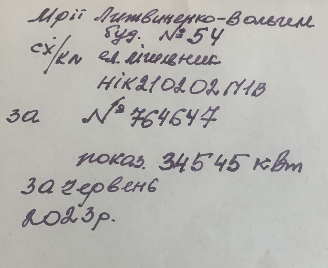 Мрії Литвиненко-Вольгем
буд. №54
сх/кп ел лічильник
НІК2102021П1В
за №764647
показ. 34545 кВт
за червень
2023р.